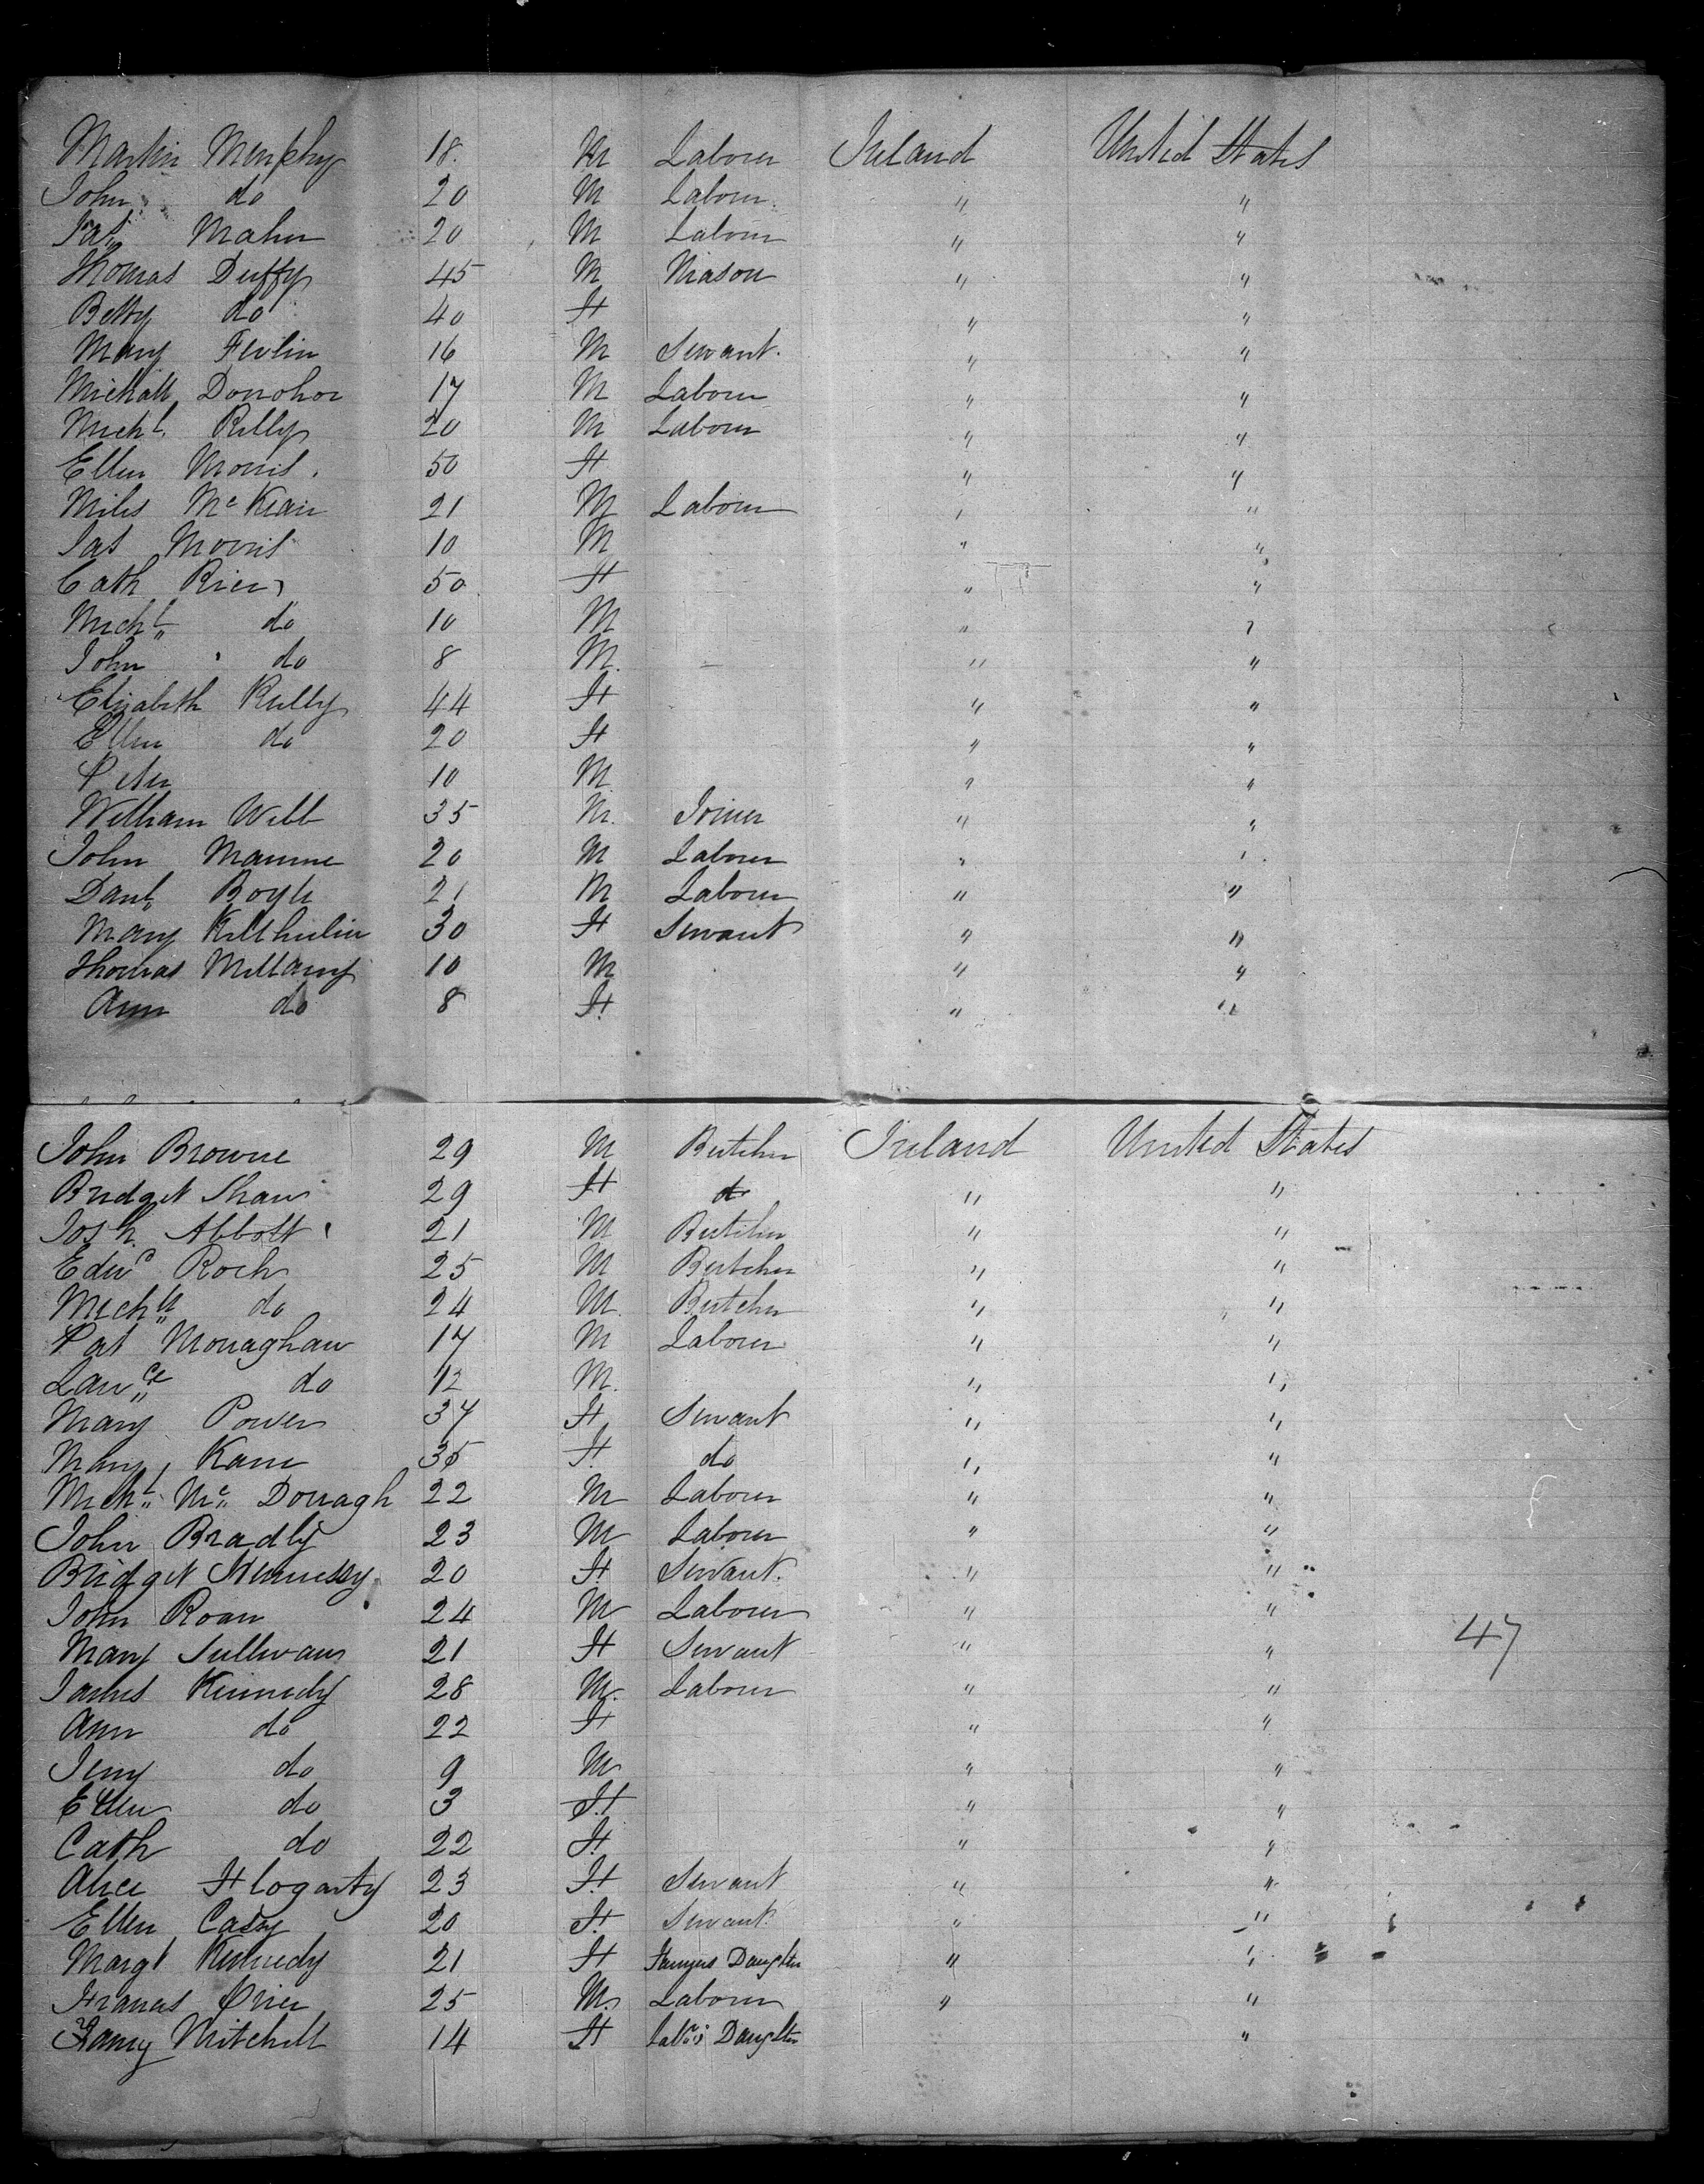 Martin Murphy 18. M Laborer Ireland United States
John do 20 M Laborer " "
Pat Maher 20 M Laborer " "
Thomas Duffy 45 M Mason " "
Betty do 40 F " "
Mary Fevlin 16 M Servant. " "
Michall Donohoe 17 M Laborer " "
Michl. Rilly 20 M Laborer " "
Ellen Morris. 50 F " "
Miles Mc Kean 21 M Laborer " "
Jas Morris 10 M " "
Cath Rier 50 F " "
Michl do 10 M " "
John do 8 M. " "
Elizabeth Rielly 44 F " "
Ellen do 20 F " "
Peter 10 M " "
William Webb 35 M. Joiner " "
John 20 M Laborer " "
Danl. Boyle 21 M Laborer " "
Mary 30 F Servant " "
Thomas 10 M " "
Ann do 8 F. " "
John Browne 29 M Butcher Ireland United States
Bridget Shaw 29 F do " "
Josh. Abbott 21 M Butcher " "
Edwd Roch 25 M Butcher " "
Michll do 24 M. Butcher " "
Pat Monaghan 17 M Laborer " "
Lawce do 12 M. " "
Mary Power 37 F Servant " "
Mary Kane 35 F. do " "
Michl Mc Donagh 22 M Laborer " "
John Bradly 23 M Laborer " "
Bridget Hennessy. 20 F Servant. " "
John Roan 24 M Laborer " "
47
Mary Sullivan 21 F Servant " "
James Kennedy 28 M. Laborer " "
Ann do 22 F " "
Jerry do 9 M " "
Ellen do 3 F " "
Cath do 22 F " "
Alice Flogarty 23 F. Servant " "
Ellen Casey 20 F. Servant. " "
Margt Kennedy 21 F Farmers Daughter " "
Francis 25 M. Laborer " "
Mitchell 14 F Labrs Daughter "